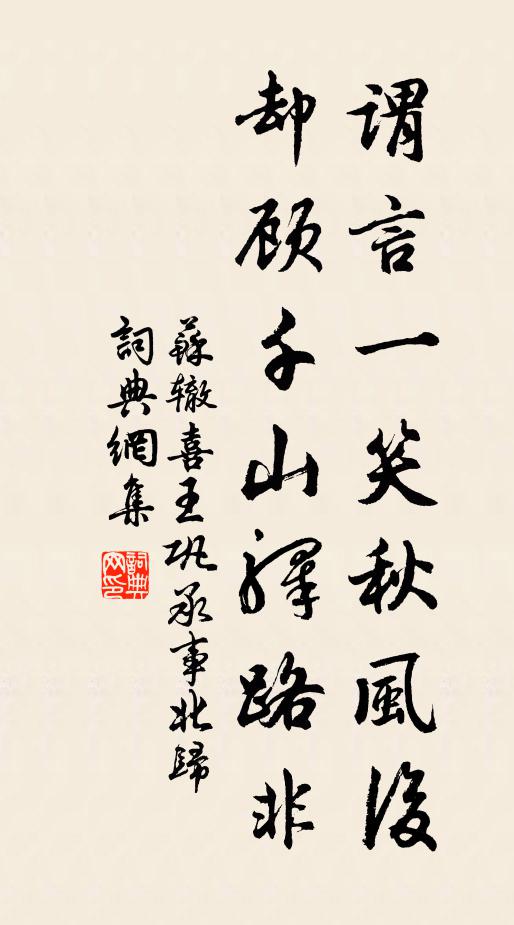 谓言一笑秋風後
却顾千山驛路非
蘇辙喜王巩承事北歸
詞典網集
詞典网印